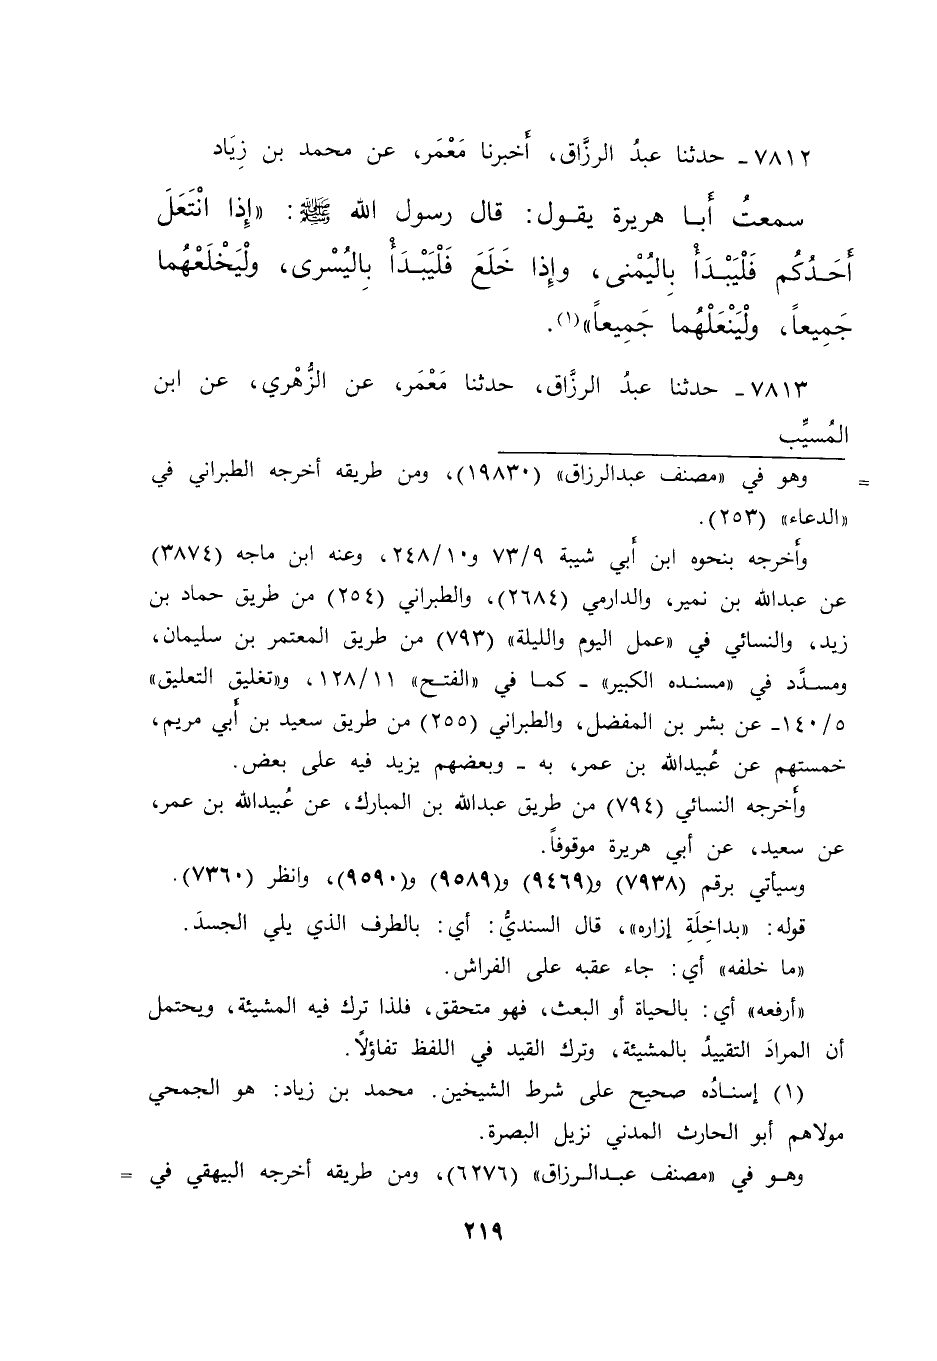 ٧٨١٢ـ حدثنا عبدُ الرزَّاق، أَخبرنا مَعْمَر، عن محمد بن زِيَاد
سمعتُ أَبـا هريرة يقـول: قال رسول الله ﷺ: «إِذا انْتَعَلَ
أَحَـدُكُم فَلْيَبْـدَأْ بِاليُمْنى، وإِذا خَلَعَ فَلْيَبْـدَأْ بِاليُسْرى، ولْيَخْلَعْهُما
جَمِيعاً، ولْيَنْعَلْهُما جَمِيعاً»(١).
٧٨١٣ـ حدثنا عبدُ الرزَّاق، حدثنا مَعْمَر، عن الزُّهْري، عن ابن
المُسيِّب
= وهو في «مصنف عبدالرزاق» (١٩٨٣٠)، ومن طريقه أخرجه الطبراني في
«الدعاء» (٢٥٣).
وأَخرجه بنحوه ابن أَبي شيبة ٧٣/٩ و٢٤٨/١٠، وعنه ابن ماجه (٣٨٧٤)
عن عبدالله بن نمير، والدارمي (٢٦٨٤)، والطبراني (٢٥٤) من طريق حماد بن
زيد، والنسائي في «عمل اليوم والليلة» (٧٩٣) من طريق المعتمر بن سليمان،
ومسدَّد في «مسنده الكبير» ـ كمـا في «الفتـح» ١٢٨/١١، و«تغليق التعليق»
١٤٠/٥ـ عن بشر بن المفضل، والطبراني (٢٥٥) من طريق سعيد بن أَبي مريم،
خمستهم عن عُبيدالله بن عمر، به ـ وبعضهم يزيد فيه على بعض.
وأَخرجه النسائي (٧٩٤) من طريق عبدالله بن المبارك، عن عُبيدالله بن عمر،
عن سعيد، عن أبي هريرة موقوفاً.
وسيأتي برقم (٧٩٣٨) و(٩٤٦٩) و(٩٥٨٩) و(٩٥٩٠)، وانظر (٧٣٦٠).
قوله: «بداخِلَةِ إزاره»، قال السنديُّ: أي: بالطرف الذي يلي الجسدَ.
«ما خلفه» أي: جاء عقبه على الفراش.
«أرفعه» أي: بالحياة أو البعث، فهو متحقق، فلذا ترك فيه المشيئة، ويحتمل
أن المرادَ التقييدُ بالمشيئة، وترك القيد في اللفظ تفاؤلاً.
(١) إسنـادُه صحيح على شرط الشيخين. محمد بن زياد: هو الجمحي
مولاهم أبو الحارث المدني نزيل البصرة.
وهـو في «مصنف عبـدالـرزاق» (٦٢٧٦)، ومن طريقه أخرجه البيهقي في =
٢١٩